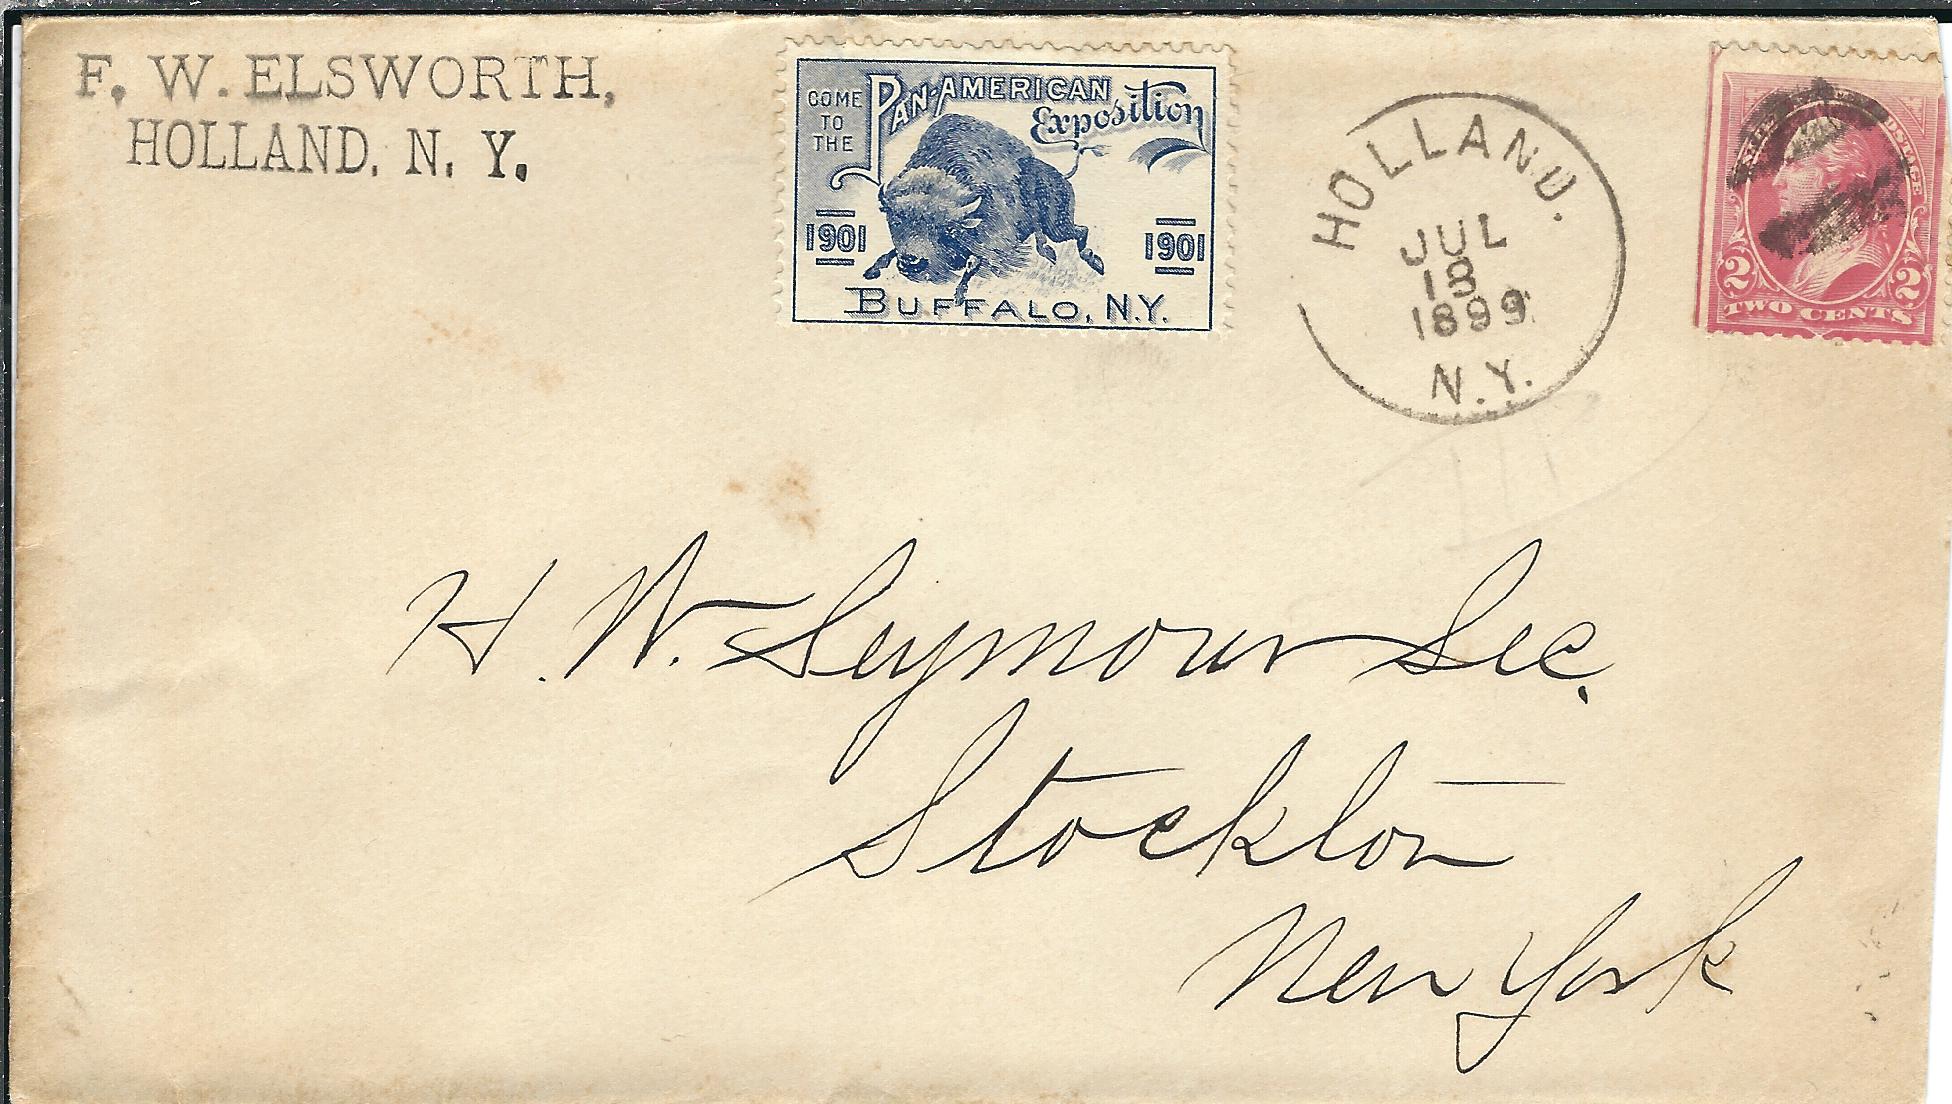 F. W. ELSWORTH,
HOLLAND, N. Y.
COME TO THE PAN-AMERICAN Exposition
1901 1901
BUFFALO, N.Y.
HOLLAND.
JUL
18
1899
N.Y.
2 2
TWO CENTS
H. W. Seymour Sec.
Stockton
New York